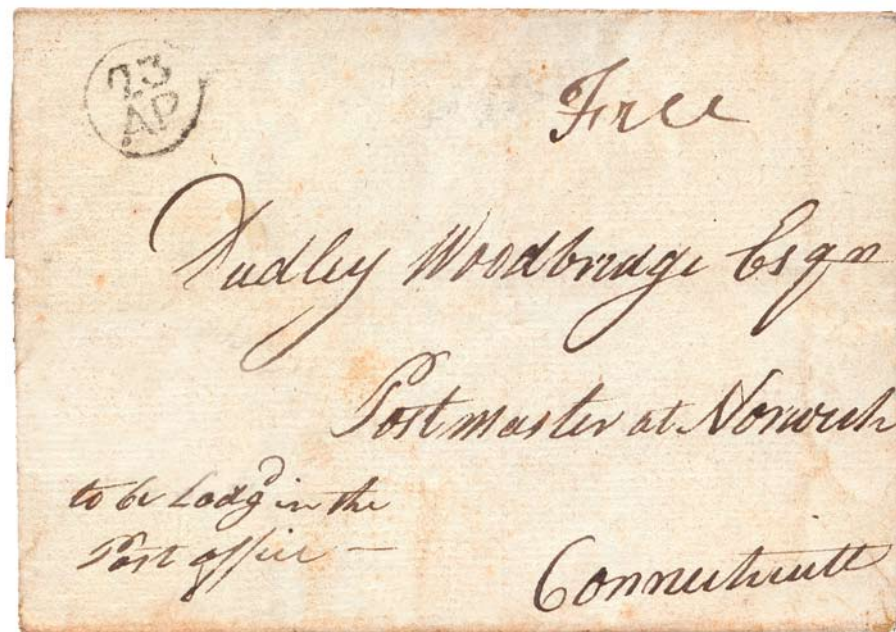 23
AP
Free
Dudley Woodbridge Esqr
Postmaster at Norwich
to be Lodgd in the
Post office —
Connecticutt